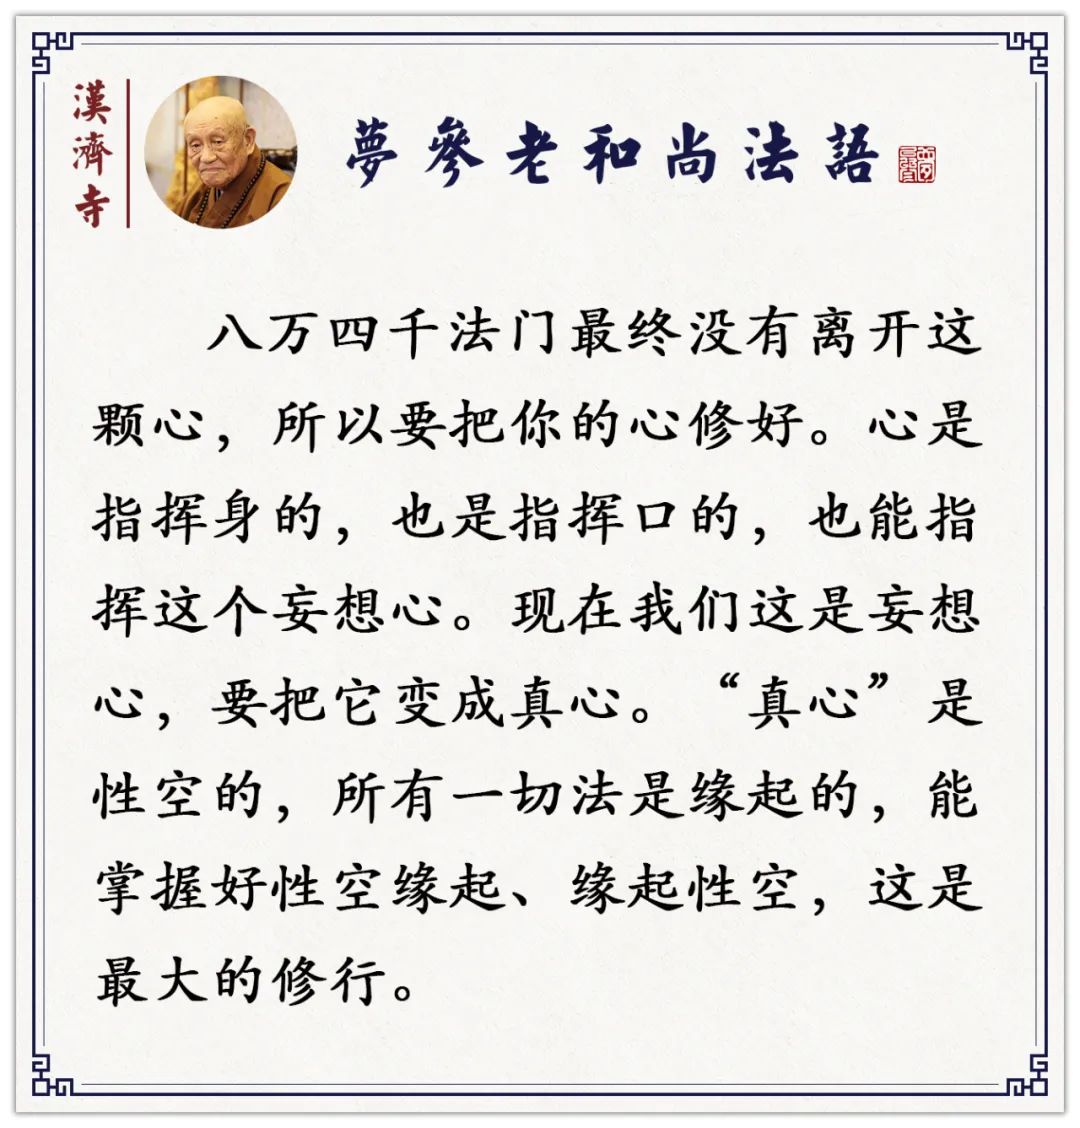 漢濟寺
夢參老和尚法語
八万四千法门最终没有离开这
颗心，所以要把你的心修好。心是
指挥身的，也是指挥口的，也能指
挥这个妄想心。现在我们这是妄想
心，要把它变成真心。“真心”是
性空的，所有一切法是缘起的，能
掌握好性空缘起、缘起性空，这是
最大的修行。